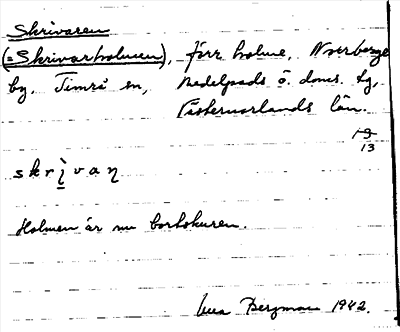 Skrivaren
(=Skrivarholmen), förr holme, Norrberge
by, Timrå sn, Medelpads ö. doms. tg,
Västernorlands län.
13
skrìvaɳ
Holmen är nu bortskuren.
Bergman 1942.